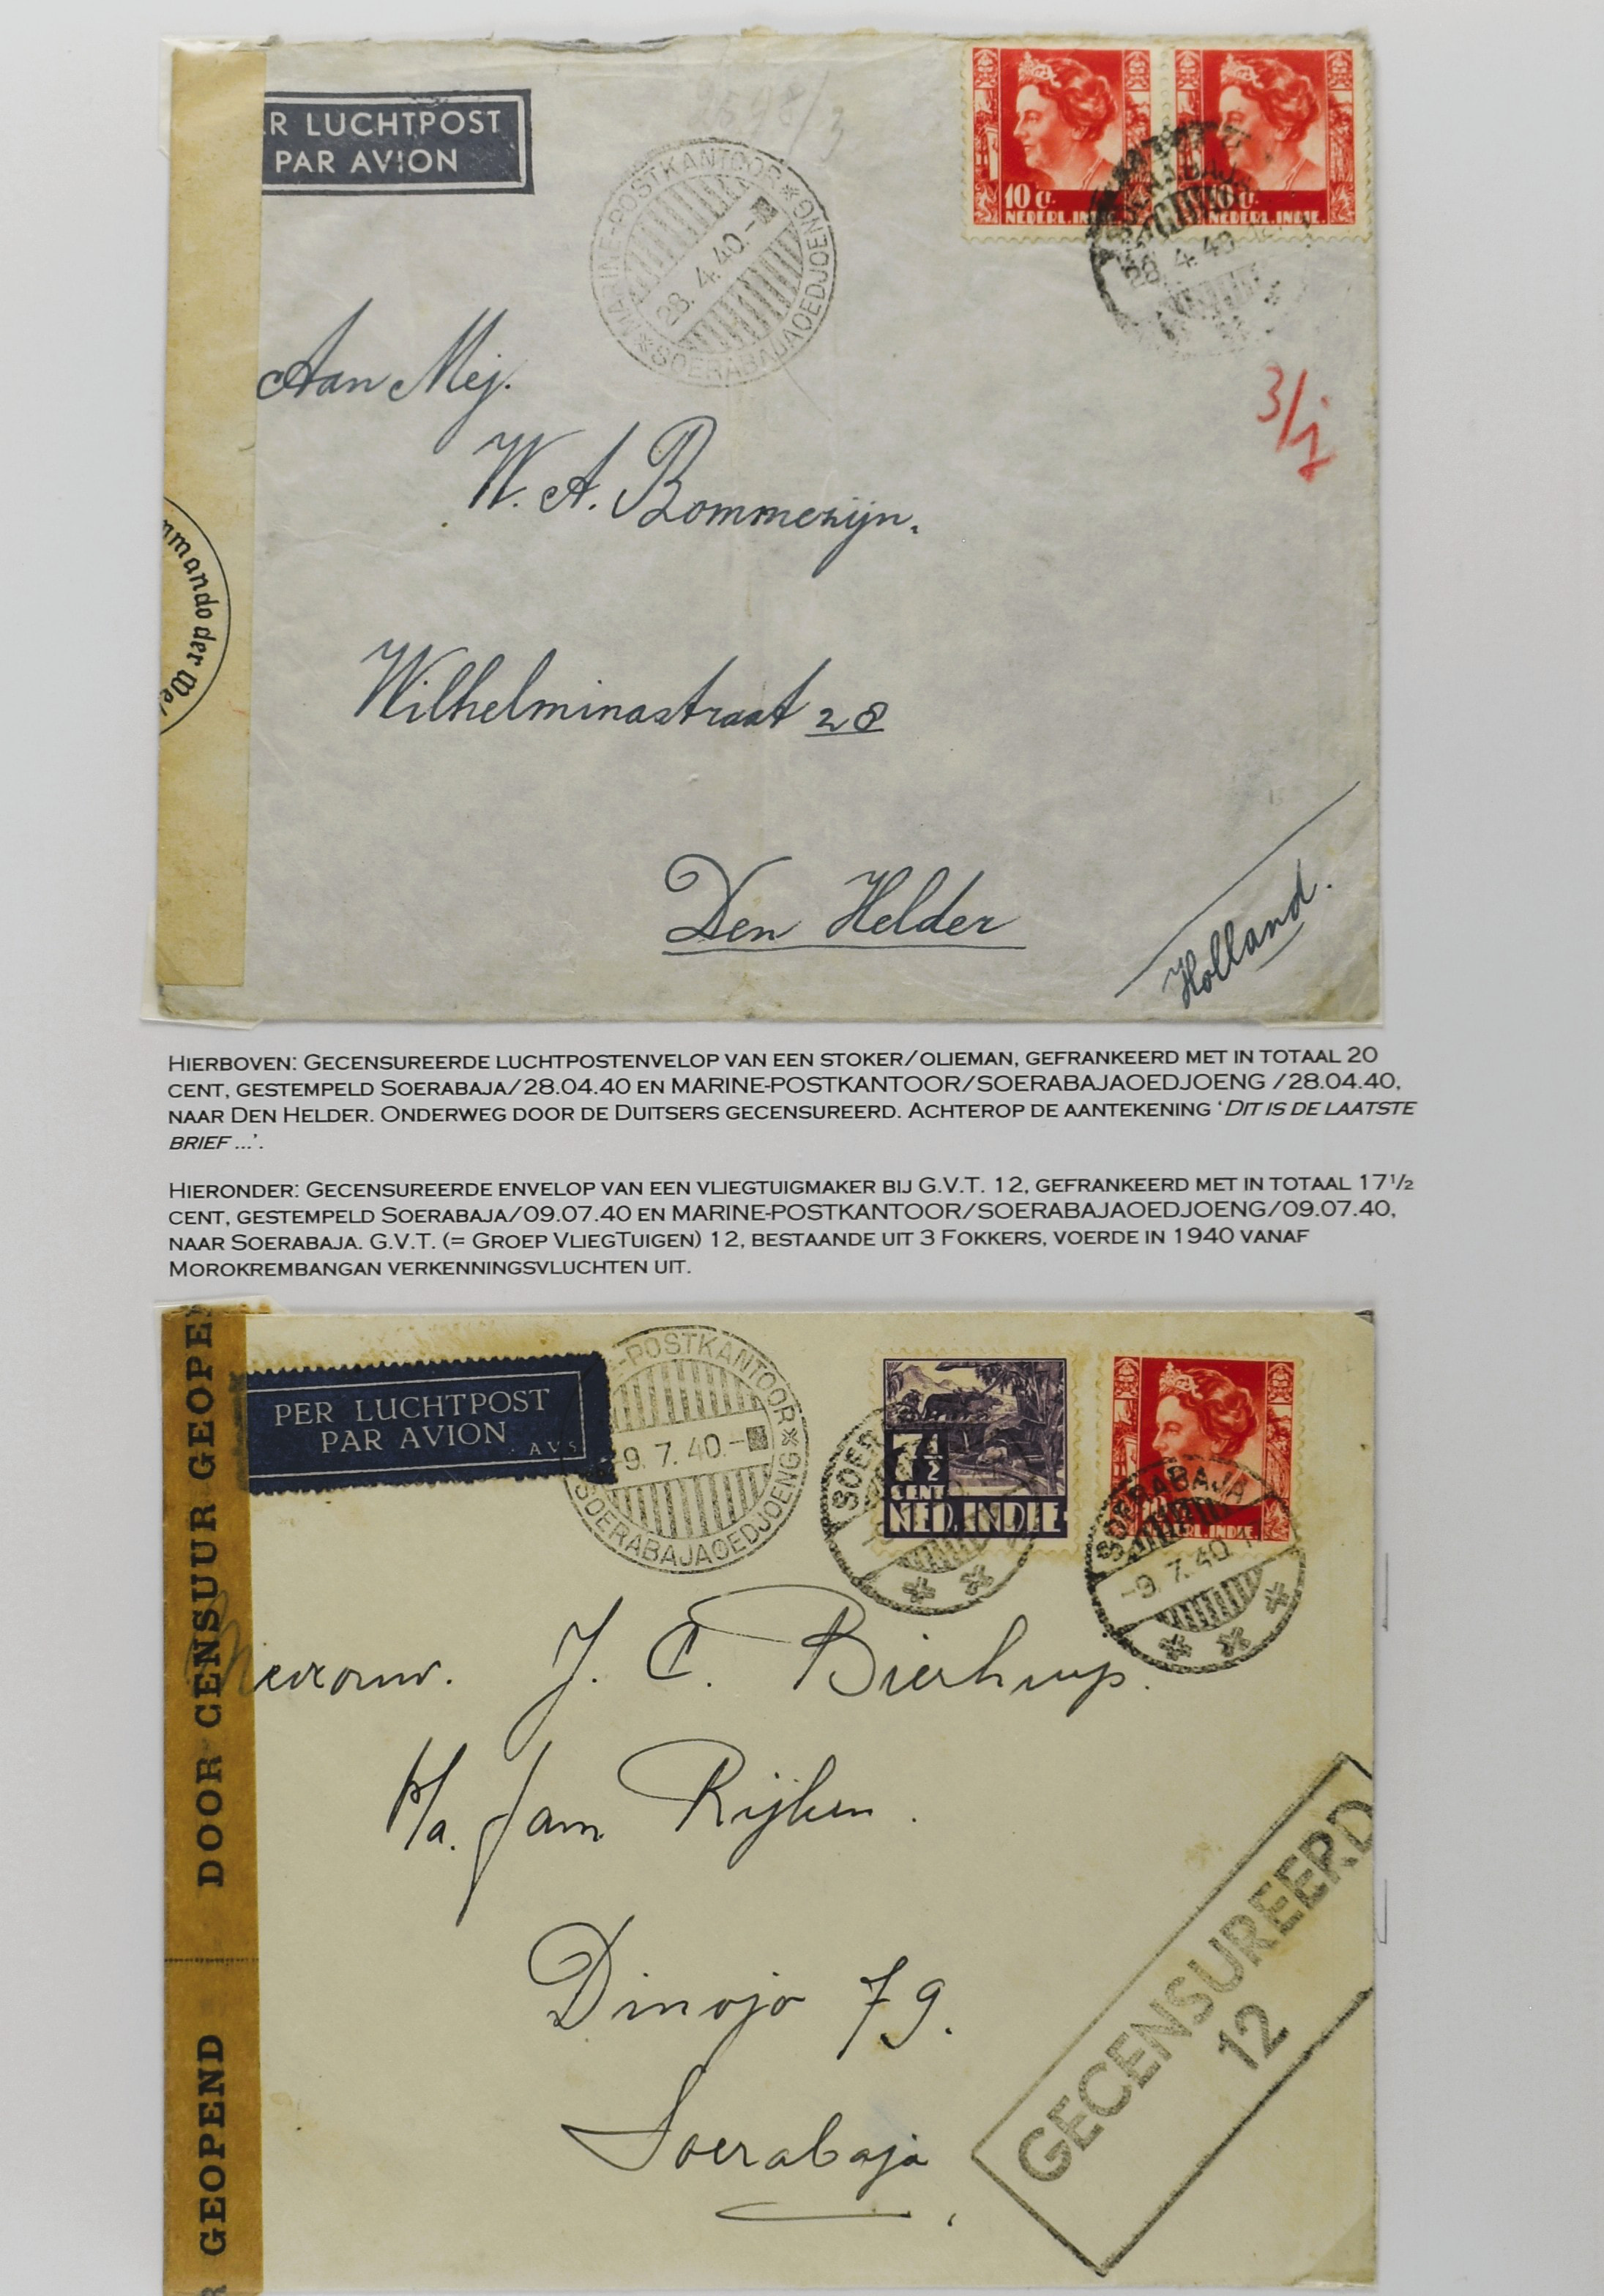 R LUCHTPOST
PAR AVION
MARINE-POSTKANTOOR
28. 4.40.-
SOERABAJAOEDJOENG
10 ct.
NEDERL. INDIE
NEDERL. INDIE.
SOERABAJA
28. 4. 40
3/j
Aan Mej.
W. A. Bommezijn.
Wilhelminastraat 28
Den Helder
Holland.
mmando der We
Hierboven: Gecensureerde luchtpostenvelop van een stoker/olieman, gefrankeerd met in totaal 20
cent, gestempeld Soerabaja/28.04.40 en MARINE-POSTKANTOOR/SOERABAJAOEDJOENG /28.04.40,
naar Den Helder. Onderweg door de Duitsers gecensureerd. Achterop de aantekening ‘Dit is de laatste
brief ...’.
Hieronder: Gecensureerde envelop van een vliegtuigmaker bij G.V.T. 12, gefrankeerd met in totaal 17½
cent, gestempeld Soerabaja/09.07.40 en MARINE-POSTKANTOOR/SOERABAJAOEDJOENG/09.07.40,
naar Soerabaja. G.V.T. (= Groep VliegTuigen) 12, bestaande uit 3 Fokkers, voerde in 1940 vanaf
Morokrembangan verkenningsvluchten uit.
DOOR CENSUUR GEOPE
GEOPEND
PER LUCHTPOST
PAR AVION
A V S
E-POSTKANTOOR
-9. 7. 40.-
SOERABAJAOEDJOENG
7½
CENT
NED. INDIE
SOER
SOERABAJA
-9. 7. 40 17
Mevrouw. J. C. Bierhuys.
P/a. Jam Rijken.
Dinojo 79.
Soerabaja
GECENSUREERD
12